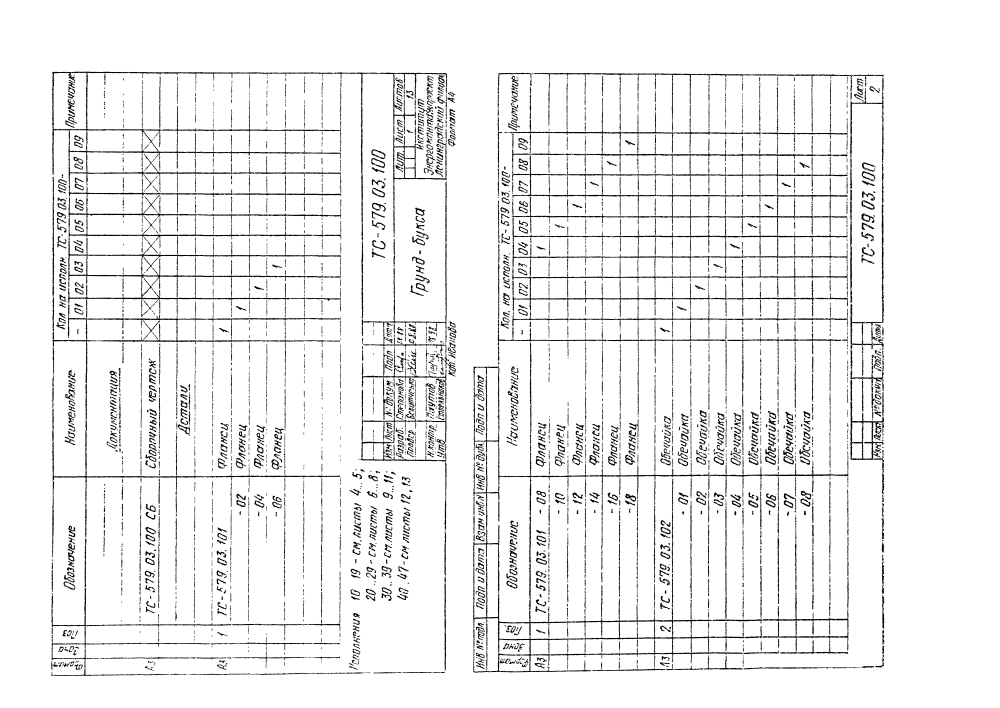 Формат
Зона
Поз
Обозначение
Наименование
Кол. на исполн. ТС-579.03.100-
- 01 02 03 04 05 06 07 08 09
Примечание
Документация
А3 ТС-579.03.100 СБ Сборочный чертеж
Детали
А3 1 ТС-579.03.101 Фланец 1
-02 Фланец 1
-04 Фланец 1
-06 Фланец 1
Исполнения 10 19 - см. листы 4..5;
20..29 - см. листы 6..8;
30..39 - см. листы 9..11;
40..47 - см. листы 12,13
Изм Лист № докум Подп Дата
Разраб. Степанова
Провер
Н.контр. Паутов
Утв
ТС-579.03.100
Грунд-букса
Лит. Лист Листов
1 13
Институт
Энергомонтажпроект
Ленинградский филиал
Коп. Иванова
Формат А4
Инв № подл. Подп и дата Взам инв.№ Инв № дубл. Подп и дата
Формат
Зона
Поз.
Обозначение
Наименование
Кол. на исполн. ТС-579.03.100-
- 01 02 03 04 05 06 07 08 09
Примечание
А3 1 ТС-579.03.101 -08 Фланец 1
-10 Фланец 1
-12 Фланец 1
-14 Фланец 1
-16 Фланец 1
-18 Фланец 1
А3 2 ТС-579.03.102 Обечайка 1
-01 Обечайка 1
-02 Обечайка 1
-03 Обечайка 1
-04 Обечайка 1
-05 Обечайка 1
-06 Обечайка 1
-07 Обечайка 1
-08 Обечайка 1
Изм Лист № докум Подп. Дата
ТС-579.03.100
Лист
2